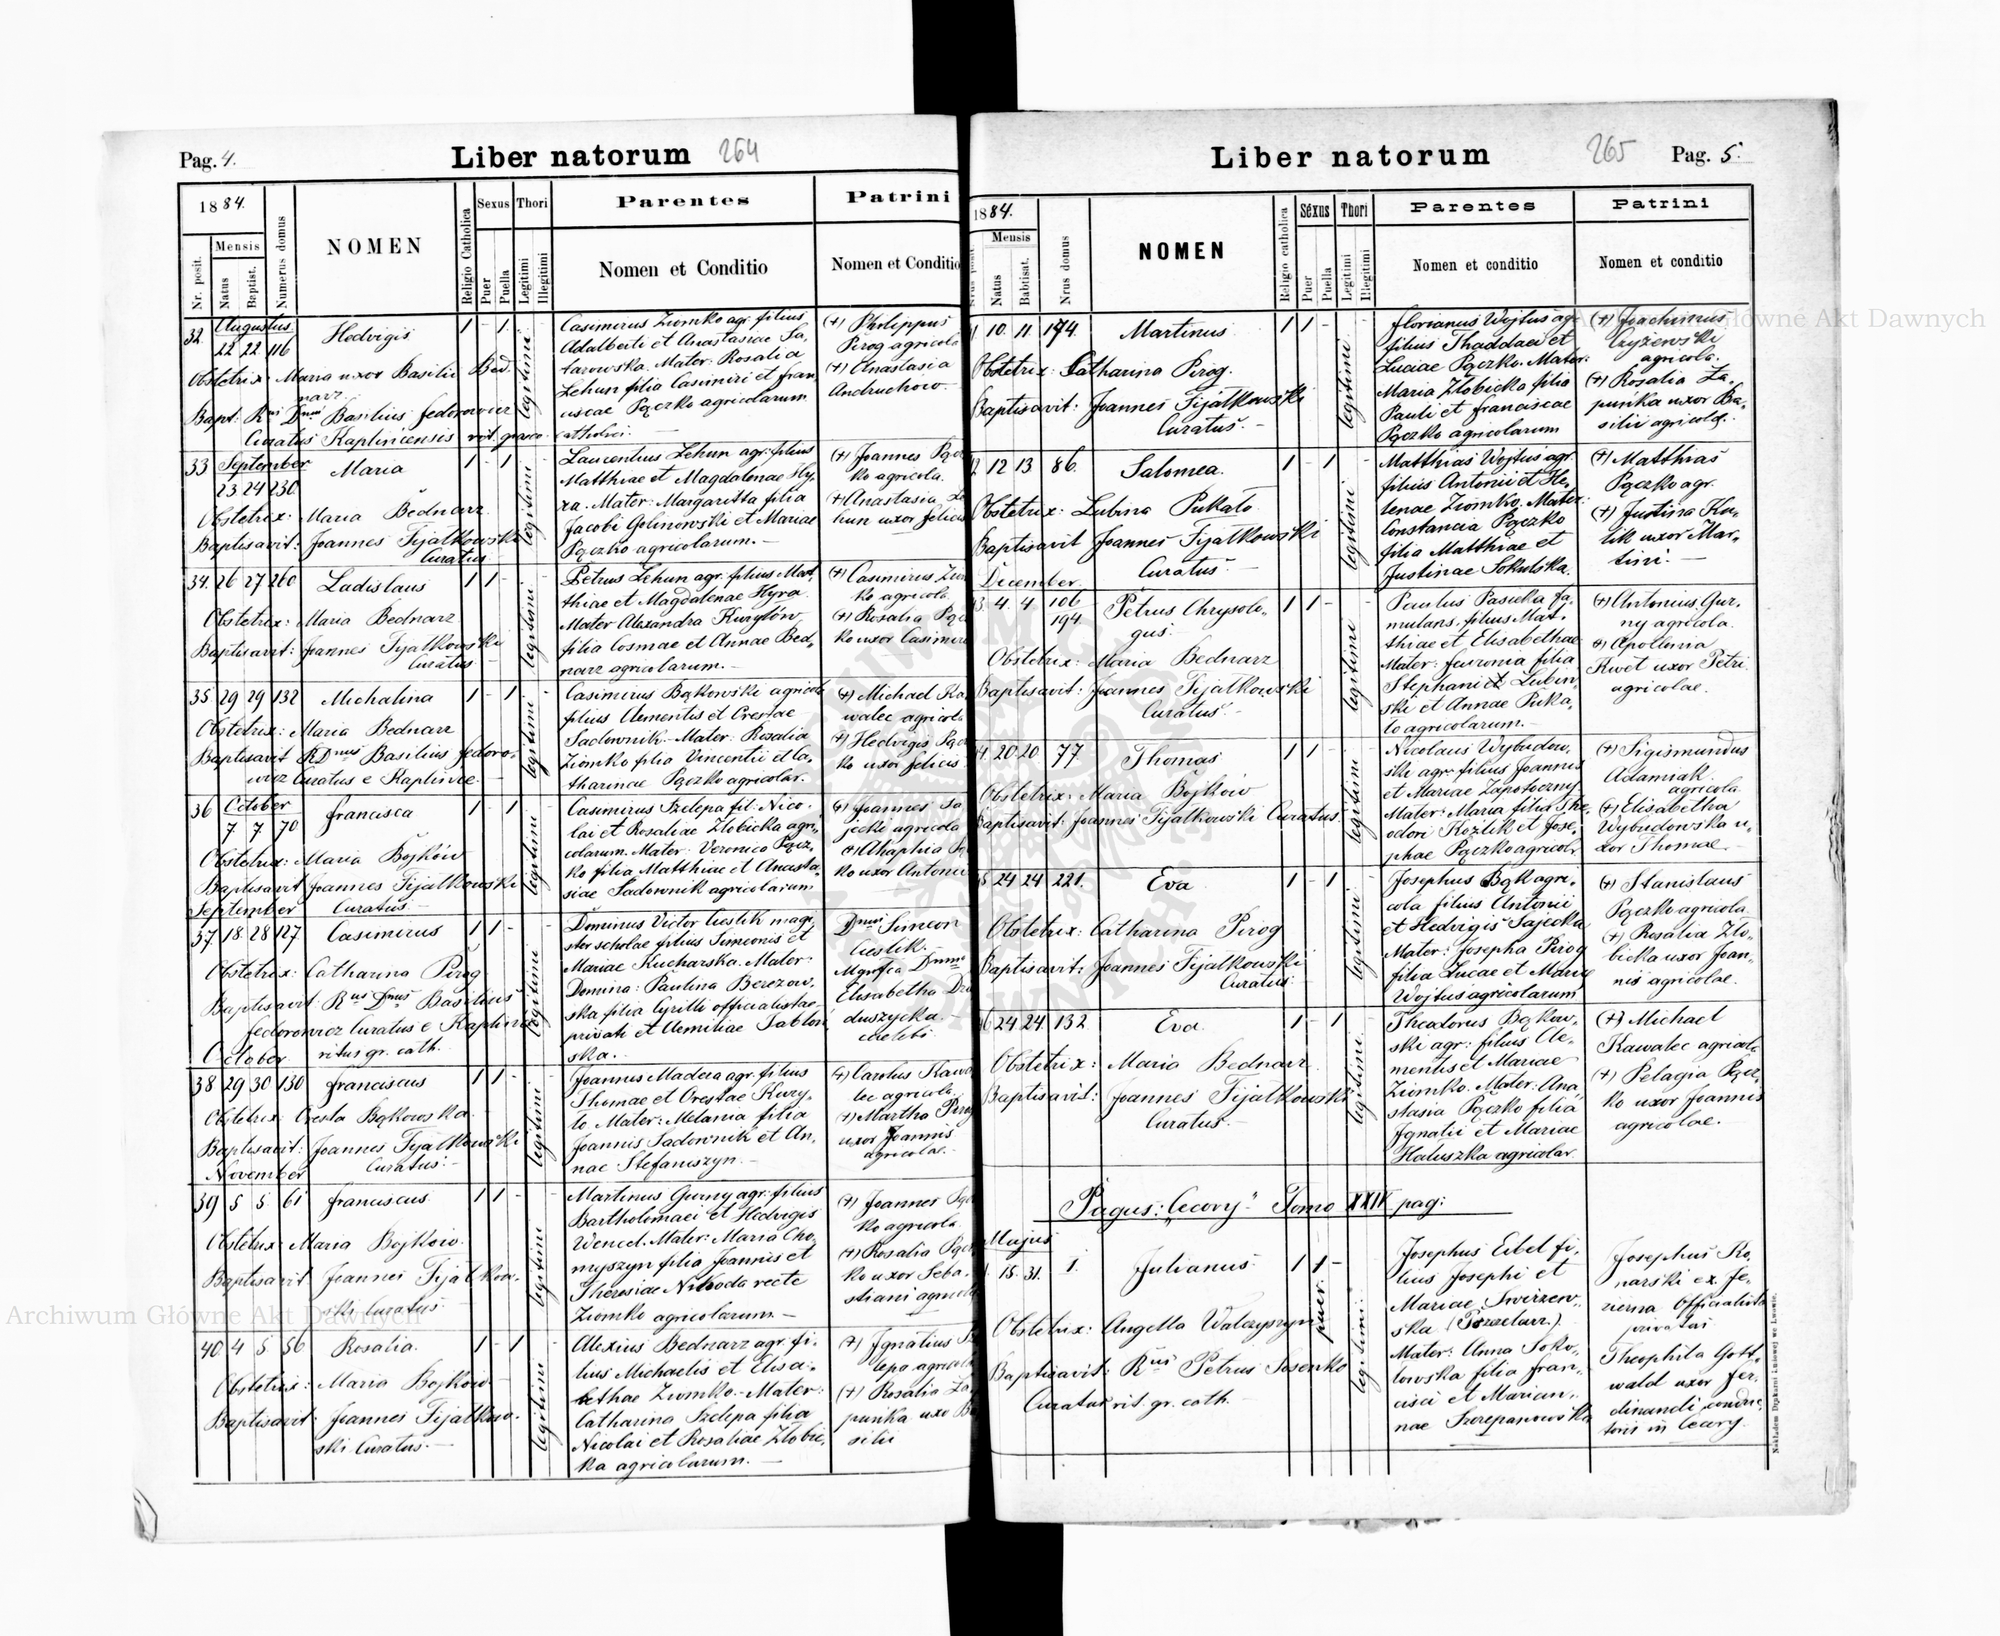 Pag. 4.
Liber natorum 264
1884.
Nr. posit.
Mensis
Natus
Baptist.
Numerus domus
NOMEN
Religio Catholica
Sexus
Puer
Puella
Thori
Legitimi
Illegitimi
Parentes
Nomen et Conditio
Patrini
Nomen et Conditio
32. Augustus
22 22 116 Hedvigis 1 - 1 -
Obstetrix: Maria uxor Basilii Bed.
narz.
Bapt. Rus Dnus Basilius Fedorowicz
Curatus Kaplincensis rit. graeco
legitimi
Casimirus Ziomko agr. filius
Adalberti et Anastasiae Sa,
tarowska. Mater: Rosalia
Lehun filia Casimiri et Fran,
ciscae Pączko agricolarum
catholici. —
(+) Philippus
Pirog agricola
(+) Anastasia
Andruchow. —
33 September
23 24 230 Maria 1 - 1 -
Obstetrix: Maria Bednarz
Baptisavit: Joannes Fijałkowski
Curatus
legitimi
Laurentius Lehun agr. filius
Matthiae et Magdalenae Hy,
ra. Mater: Margaritta filia
Jacobi Golinowski et Mariae
Pączko agricolarum. —
(+) Joannes
ko agricola.
(+) Anastasia
hun uxor
34. 26 27 260 Ladislaus 1 1 -
Obstetrix: Maria Bednarz
Baptisavit: Joannes Fijałkowski
Curatus
legitimi
Petrus Lehun agr. filius Mat,
thiae et Magdalenae Hyra
Mater Alexandra Kuryłów
filia Cosmae et Annae Bed,
narz agricolarum. —
(+) Casimirus
ko agricola
(+) Rosalia
ko uxor
35 29 29 132 Michalina 1 - 1 -
Obstetrix: Maria Bednarz
Baptisavit RDnus Basilius Fedoro,
wicz Curatus e Kaplince. —
legitimi
Casimirus Bąkowski agricola
filius Clementis et Orestae
Sadownik. Mater: Rosalia
Ziomko filia Vincentii et Ca,
tharinae Pączko agricolar.
(+) Michael
walec agricola
(+) Hedvigis
ko uxor Felicis
36 October
7 7 70 Francisca 1 - 1
Obstetrix: Maria Bojków
Baptisavit Joannes Fijałkowski
Curatus —
legitimi
Casimirus Szelepa fil. Nico,
lai et Rosaliae Złobicka agri,
colarum. Mater: Veronica Pącz,
ko filia Matthiae et Anasta,
siae Sadownik agricolarum
(+) Joannes
jecki agricola
(+) Ahaphia
ko uxor
September
37 18 28 127. Casimirus 1 1 -
Obstetrix: Catharina Pirog
Baptisavit: Rus Dnus Basilius
Fedorowicz Curatus e Kaplince
ritus gr. cath.
legitimi
Dominus Victor Cieslik magi,
ster scholae filius Simeonis et
Mariae Kucharska. Mater:
Domina: Paulina Berezow,
ska filia Cyrilli officialistae
privati et Aemiliae Jabłoń
ska. —
Dnus Simeon
Cieslik. —
Elisabetha
duszycka. —
caelebs. —
October
38 29 30 130 Franciscus 1 1 -
Obstetrix: Oresta Bąkowska
Baptisavit: Joannes Fijałkowski
Curatus —
legitimi
Joannes Madera agr. filius
Thomae et Orestae Kury,
ło Mater: Melania filia
Joannis Sadownik et An,
nae Stefaniszyn. —
(+) Carolus
lec agricola.
(+) Martha
uxor Joannis
agricolae. —
November
39 5 5. 61 Franciscus. 1 1 -
Obstetrix: Maria Bojków.
Baptisavit Joannes Fijałkow,
ski Curatus —
legitimi
Martinus Gurny agr. filius
Bartholomaei et Hedvigis
Wencel. Mater: Maria Cho,
myszyn filia Joannis et
Theresiae Nikoda recte
Ziomko agricolarum. —
(+) Joannes
ko agricola.
(+) Rosalia
ko uxor Seba,
stiani
40. 4 5. 56 Rosalia. 1 - 1
Obstetrix: Maria Bojków —
Baptisavit: Joannes Fijałkow,
ski Curatus. —
legitimi
Alexius Bednarz agr. fi,
lius Michaelis et Elisa,
bethae Ziomko. Mater:
Catharina Szelepa filia
Nicolai et Rosaliae Złobic,
ka agricolarum. —
(+) Ignatius
lepa agricola
(+) Rosalia
puńka
silii
Liber natorum 265 Pag. 5.
1884.
Mensis
Natus
Babtisat.
Nrus domus
NOMEN
Religio catholica
Séxus
Puer
Puella
Thori
Legitimi
Illegitimi
Parentes
Nomen et conditio
Patrini
Nomen et conditio
10. 11. 174 Martinus 1 1 -
Obstetrix: Catharina Pirog.
Baptisavit: Joannes Fijałkowski
Curatus. —
legitimi
Florianus Wojtus agr.
filius Thaddaei et
Luciae Pączko. Mater:
Maria Złobicka filia
Pauli et Franciscae
Pączko agricolarum
(+) Joachimus
Czyżewski
agricola.
(+) Rosalia Ła,
puńka uxor Ba,
silii agricola.
12 13 86. Salomea. 1 - 1 -
Obstetrix: Lubina Pukało
Baptisavit Joannes Fijałkowski
Curatus —
legitimi
Matthias Wojtus agr.
filius Antonii et He,
lenae Ziomko. Mater:
Constancia Pączko
filia Matthiae et
Justinae Sokulska.
(+) Matthias
Pączko agr.
(+) Justina Ku,
lik uxor Mar,
tini. —
December
4. 4 106
194. Petrus Chrysolo,
gus. 1 1 -
Obstetrix: Maria Bednarz
Baptisavit: Joannes Fijałkowski
Curatus. —
legitimi
Paulus Pasieka fa,
mulans. filius Mat,
thiae et Elisabethae
Mater: Fevronia filia
Stephani et Lubin
ski et Annae Puka,
ło agricolarum. —
(+) Antonius Gur,
ny agricola.
(+) Apolonia
Kwet uxor Petri
agricolae.
20 20. 77. Thomas 1 1 -
Obstetrix: Maria Bojków
Baptisavit: Joannes Fijałkowski Curatus.
legitimi
Nicolaus Wybudow,
ski agr. filius Joannis
et Mariae Zapotoczny
Mater: Maria filia The,
odori Koźlik et Jose,
phae Pączko agricolr.
(+) Sigismundus
Adamiak
agricola.
(+) Elisabetha
Wybudowska u,
xor Thomae. —
24 24 221. Eva 1 - 1 -
Obstetrix: Catharina Pirog
Baptisavit: Joannes Fijałkowski
Curatus
legitimi
Josephus Bąk agri,
cola filius Antonii
et Hedvigis Sajecka
Mater: Josepha Pirog
filia Lucae et Mariae
Wojtus agricolarum
(+) Stanislaus
Pączko agricola.
(+) Rosalia Zło,
bicka uxor Joan,
nis agricolae.
24 24. 132 Eva 1 - 1
Obstetrix: Maria Bednarz
Baptisavit: Joannes Fijałkowski
Curatus. —
legitimi
Theodorus Bąkow,
ski agr: filius Cle,
mentis et Mariae
Ziomko. Mater: Ana,
stasia Pączko filia
Ignatii et Mariae
Hałuszka agricolar.
(+) Michael
Kawalec agricola
(+) Pelagia Pącz,
ko uxor Joannis
agricolae. —
Pagus: „Cecory" Tomo XXIX pag:
Majus
15. 31. 1. Julianus 1 1 -
Obstetrix: Angella Walczyszyn
Baptisavit: Rus Petrus Sosenko
Curatus rit. gr. cath.
puer
legitimi
Josephus Eibel fi,
lius Josephi et
Mariae Swirzew,
ska
Mater: Anna Soko,
łowska filia Fran,
cisci et Marian,
nae Szczepanowska
Josephus Ko
narski ex Je,
zierna Officialista
privatus
Theophila Gott,
wald uxor Fer,
dinandi conduc,
toris in Cecory.
Nakładem Drukarni Ludowej we Lwowie.
Archiwum Główne Akt Dawnych
Archiwum Główne Akt Dawnych